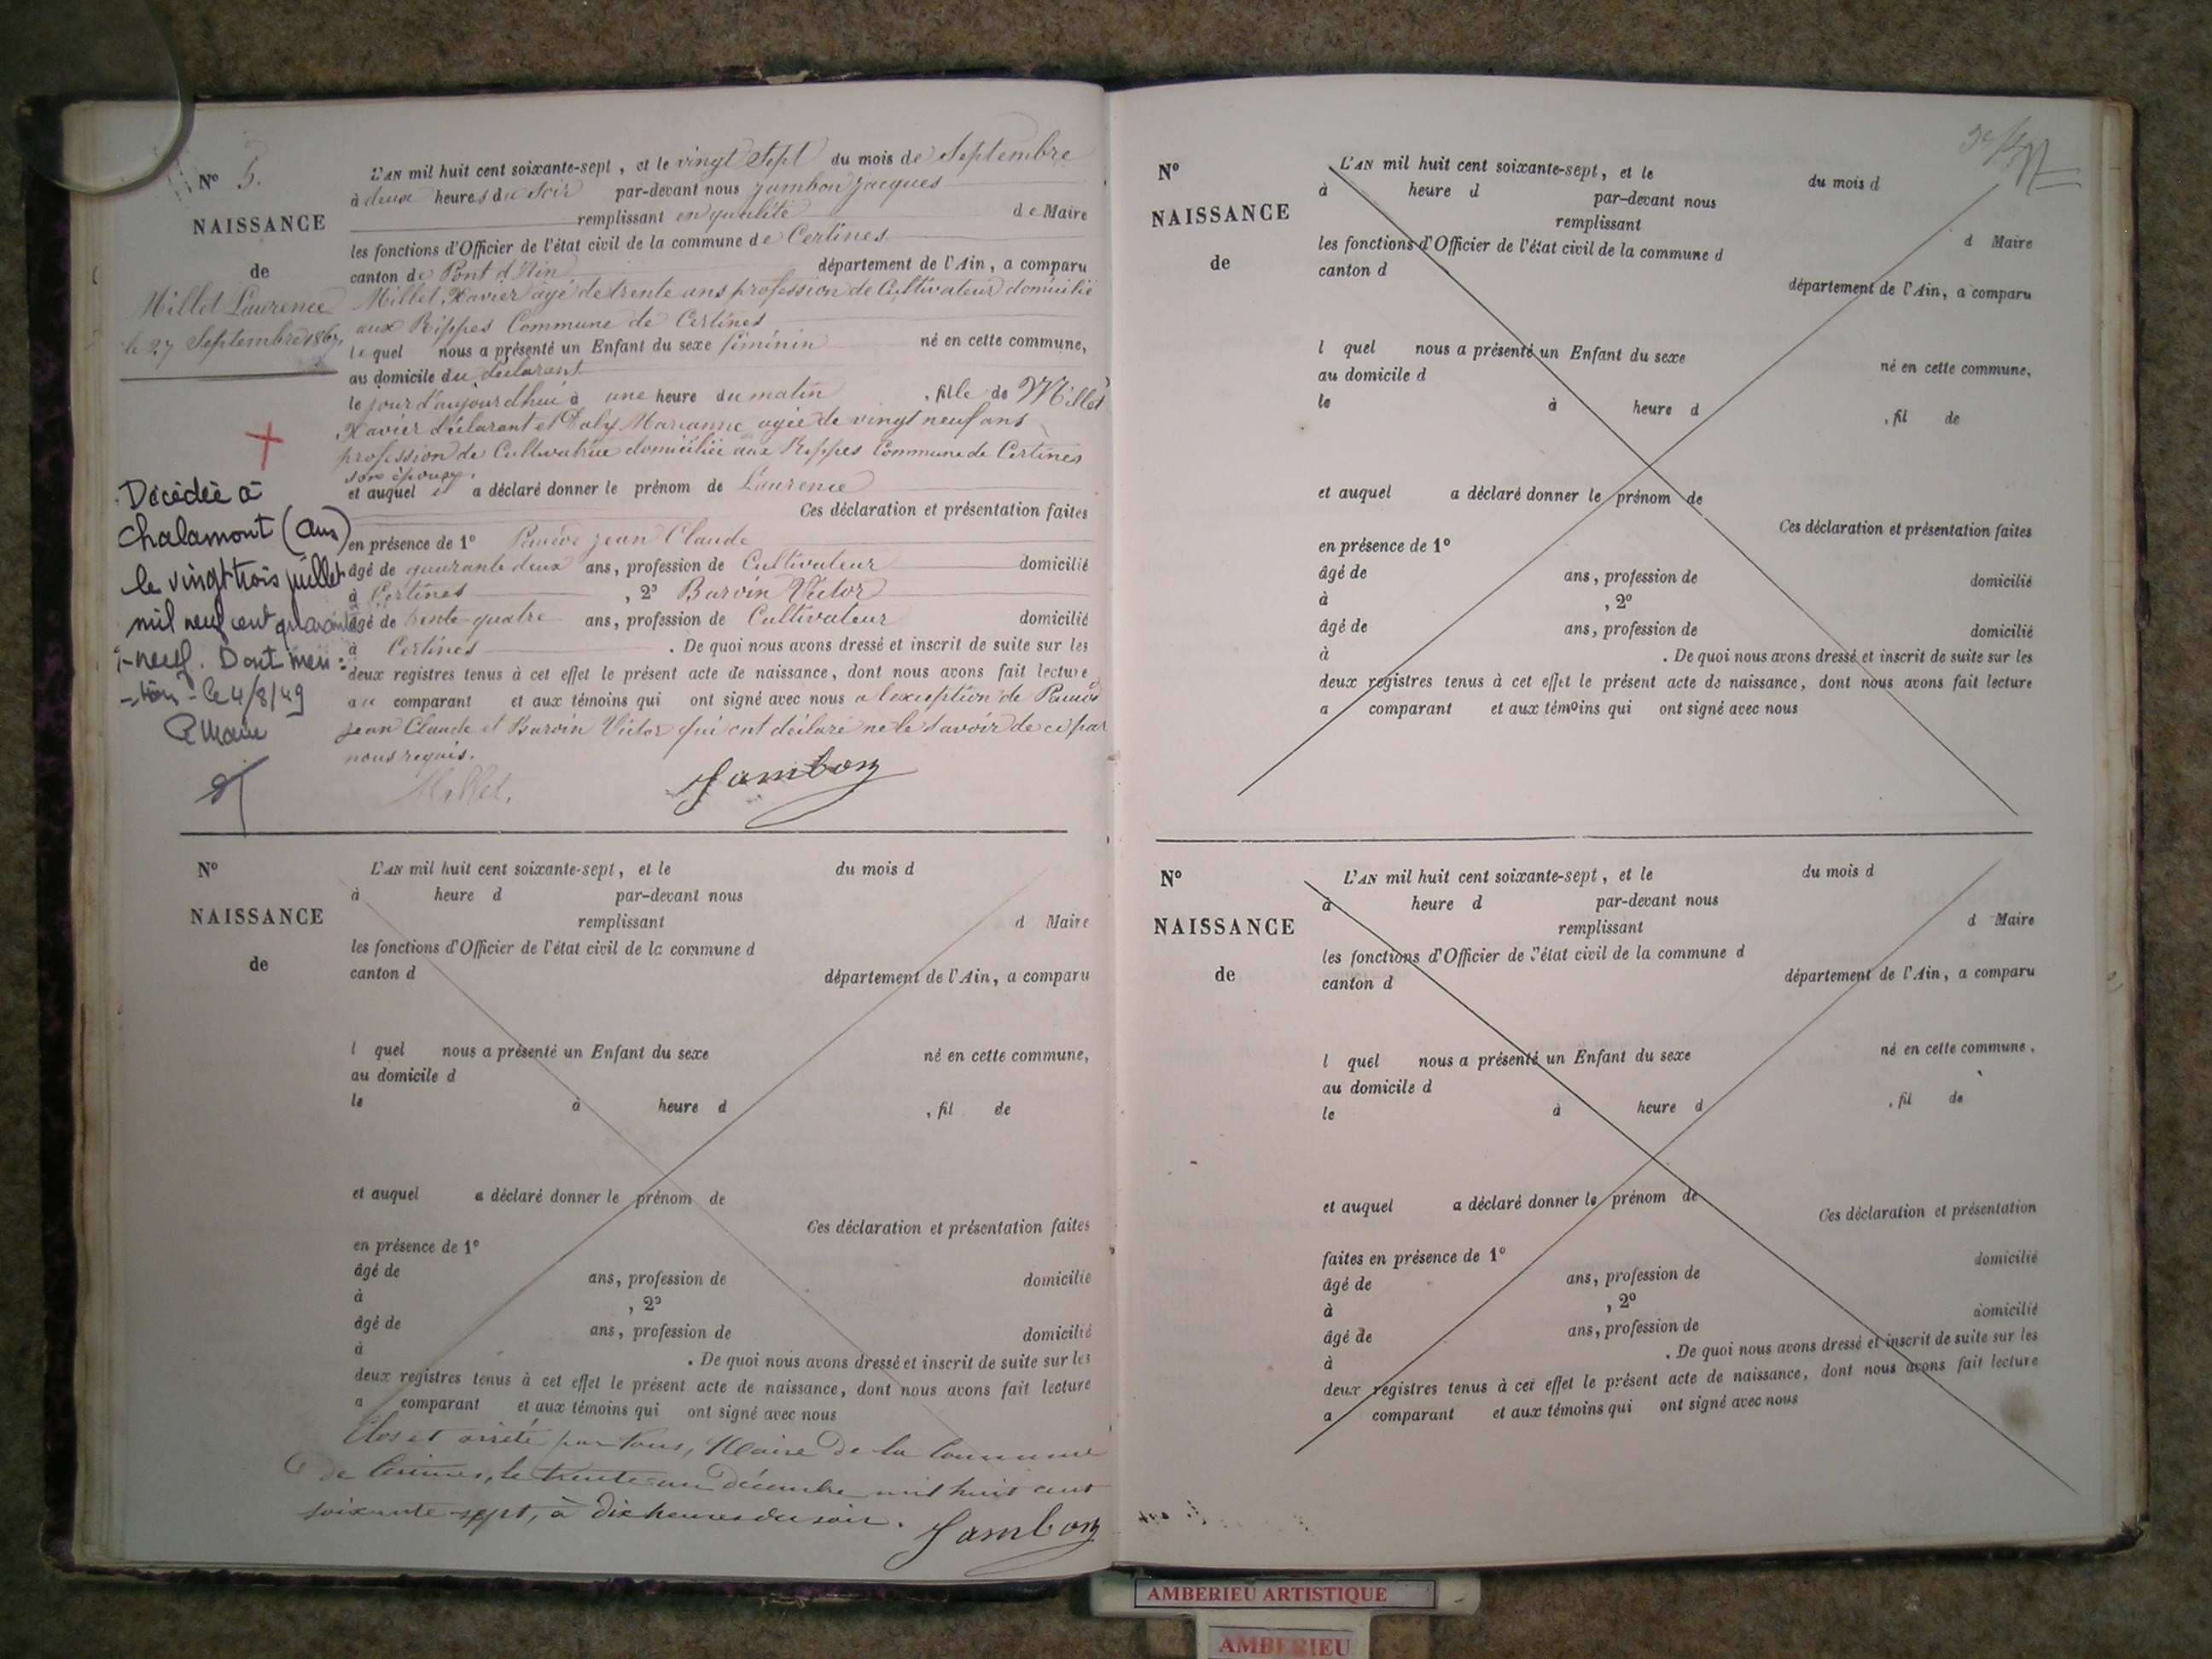 N° 5.
NAISSANCE
de
Millet Laurence
le 27 Septembre 1867,
Décédée à
Chalamont (Ain)
le vingt trois juillet
mil neuf cent quarante
-neuf. Dont men-
-tion - le 4/8/49
Le Maire
L'AN mil huit cent soixante-sept, et le vingt Sept du mois de Septembre
à deux heures du Soir par-devant nous Jambon Jacques
remplissant en qualité de Maire
les fonctions d'Officier de l'état civil de la commune de Certines
canton de Pont d'Ain département de l'Ain, a comparu
Millet Xavier âgé de trente ans profession de Cultivateur domicilié
aux Rippes Commune de Certines
lequel nous a présenté un Enfant du sexe féminin né en cette commune,
au domicile du déclarant
le jour d'aujourdhui à une heure du matin, fille de Millet
Xavier déclarant et Marianne agée de vingt neuf ans
profession de Cultivatrice domiciliée aux Rippes Commune de Certines
son épouse.
et auquel il a déclaré donner le prénom de Laurence
Ces déclaration et présentation faites
en présence de 1° Jean Claude
âgé de quarante deux ans, profession de Cultivateur domicilié
à Certines, 2° Barvin Victor
âgé de trente quatre ans, profession de Cultivateur domicilié
à Certines. De quoi nous avons dressé et inscrit de suite sur les
deux registres tenus à cet effet le présent acte de naissance, dont nous avons fait lecture
au comparant et aux témoins qui ont signé avec nous a l'exception de
Jean Claude et Barvin Victor qui ont déclaré ne le savoir de ce par
nous requis.
Millet. Jambon
N°
NAISSANCE
de
L'AN mil huit cent soixante-sept, et le du mois d
à heure d par-devant nous
remplissant d Maire
les fonctions d'Officier de l'état civil de la commune d
canton d département de l'Ain, a comparu
l quel nous a présenté un Enfant du sexe né en cette commune,
au domicile d
le à heure d , fil de
et auquel a déclaré donner le prénom de
Ces déclaration et présentation faites
en présence de 1°
âgé de ans, profession de domicilié
à , 2°
âgé de ans, profession de domicilié
à . De quoi nous avons dressé et inscrit de suite sur les
deux registres tenus à cet effet le présent acte de naissance, dont nous avons fait lecture
a comparant et aux témoins qui ont signé avec nous
Clos et arrêté par Nous, Maire de la Commune
de Certines, le trente-un Décembre mil huit cent
soixante-sept, à dix heures du soir. Jambon
N°
NAISSANCE
de
L'AN mil huit cent soixante-sept, et le du mois d
à heure d par-devant nous
remplissant d Maire
les fonctions d'Officier de l'état civil de la commune d
canton d département de l'Ain, a comparu
l quel nous a présenté un Enfant du sexe né en cette commune,
au domicile d
le à heure d , fil de
et auquel a déclaré donner le prénom de
Ces déclaration et présentation faites
en présence de 1°
âgé de ans, profession de domicilié
à , 2°
âgé de ans, profession de domicilié
à . De quoi nous avons dressé et inscrit de suite sur les
deux registres tenus à cet effet le présent acte de naissance, dont nous avons fait lecture
a comparant et aux témoins qui ont signé avec nous
N°
NAISSANCE
de
L'AN mil huit cent soixante-sept, et le du mois d
à heure d par-devant nous
remplissant d Maire
les fonctions d'Officier de l'état civil de la commune d
canton d département de l'Ain, a comparu
l quel nous a présenté un Enfant du sexe né en cette commune,
au domicile d
le à heure d , fil de
et auquel a déclaré donner le prénom de
Ces déclaration et présentation
faites en présence de 1° domicilié
âgé de ans, profession de
à , 2° domicilié
âgé de ans, profession de
à . De quoi nous avons dressé et inscrit de suite sur les
deux registres tenus à cet effet le présent acte de naissance, dont nous avons fait lecture
a comparant et aux témoins qui ont signé avec nous
AMBERIEU ARTISTIQUE
AMBERIEU